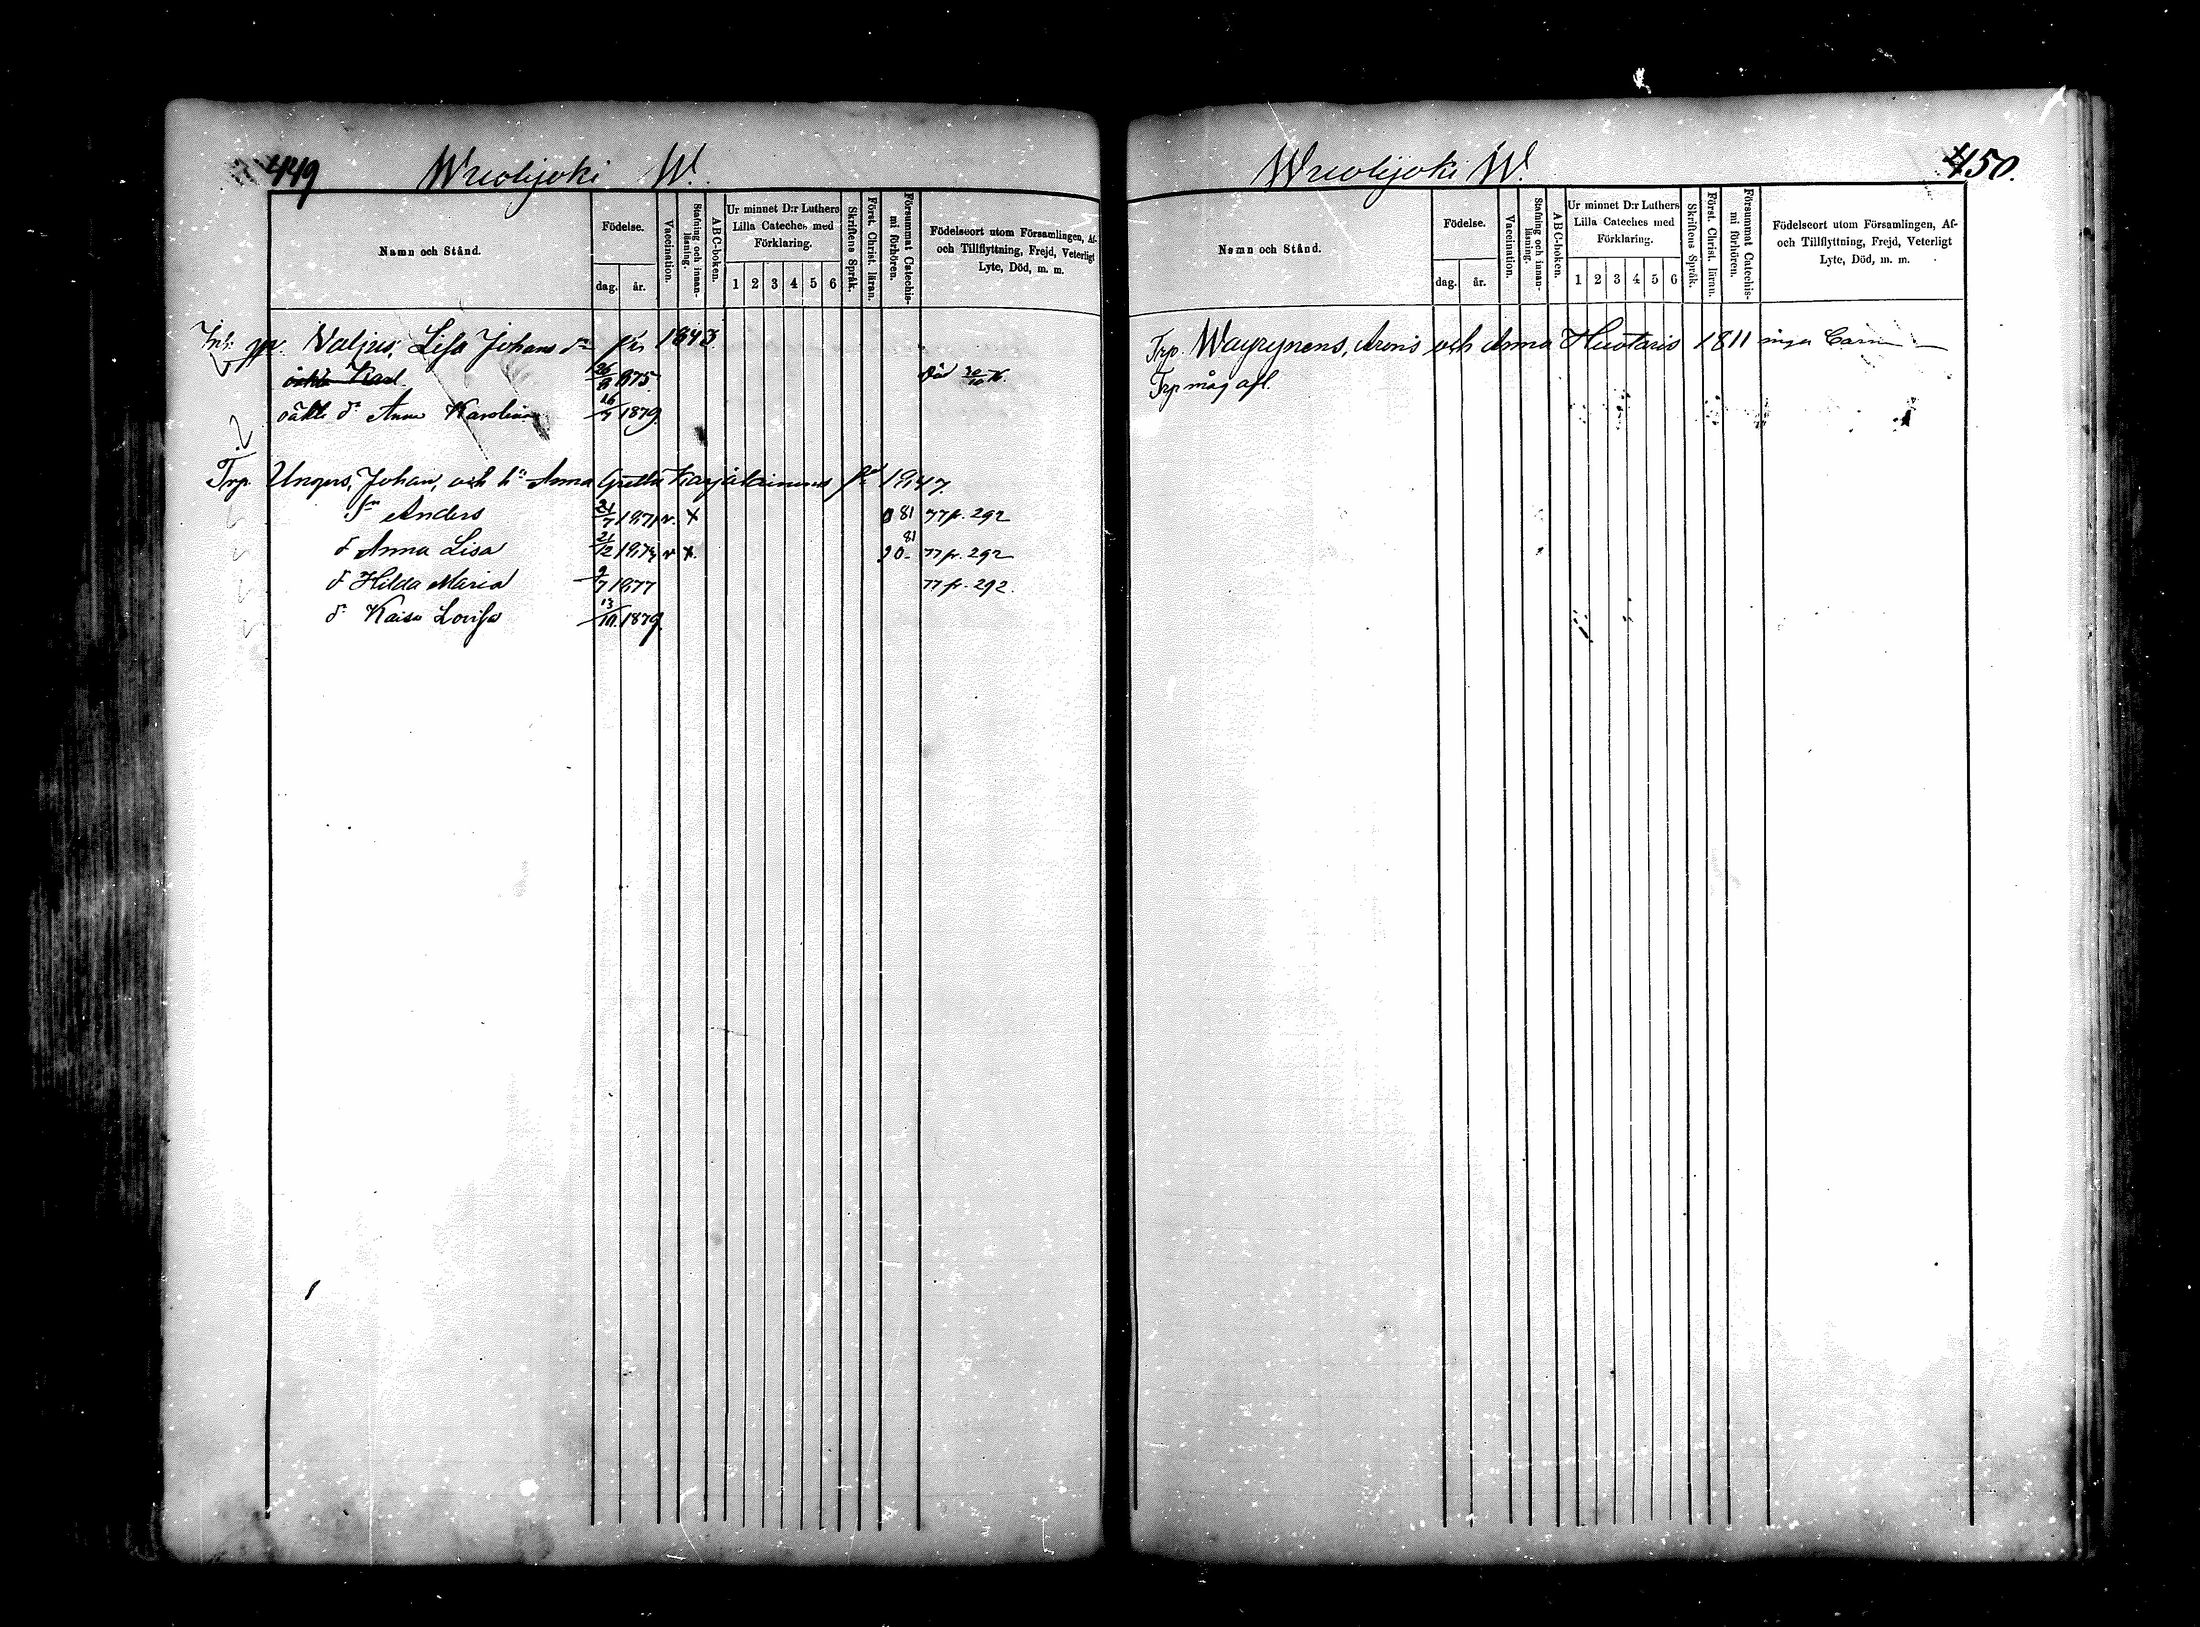 449
Wuolijoki W.
Namn och Stånd.
Födelse.
dag.
år.
Vaccination.
Stafning och innan-
läsning.
ABC-boken.
Ur minnet D:r Luthers
Lilla Cateches med
Förklaring.
1 2 3 4 5 6
Skriftens Språk.
Först. Christ. läran.
Försummat Catechis-
mi förhören.
Födelseort utom Församlingen, Af-
och Tillflyttning, Frejd, Veterligt
Lyte, Död, m. m.
Inh. pp. Valjus, Lisa Johans dr 1843
oäkta Karl. 26/8 1875 Död 20/10 76.
oäkta dr Anna Karolina 16/7 1879
Trp. Ungers, Johan, och h: Anna Greta Karjalainens 1847.
Sn Anders 21/7 1871 v. x 0 81 77 fr. 292
dr Anna Lisa 21/12 1874 v x. 81 77 fr. 292
dr Hilda Maria 9/7 1877 77 fr. 292.
dr Kaisa Lovisa 13/10. 1879.
Wuolijoki W.
450.
Namn och Stånd.
Födelse.
dag.
år.
Vaccination.
Stafning och innan-
läsning.
ABC-boken.
Ur minnet D:r Luthers
Lilla Cateches med
Förklaring.
1 2 3 4 5 6
Skriftens Språk.
Först. Christ. läran.
Försummat Catechis-
mi förhören.
Födelseort utom Församlingen, Af-
och Tillflyttning, Frejd, Veterligt
Lyte, Död, m. m.
Trp. Wäyrynens, Arons och Anna Huotaris 1811 inga barn
Trp måg afl.